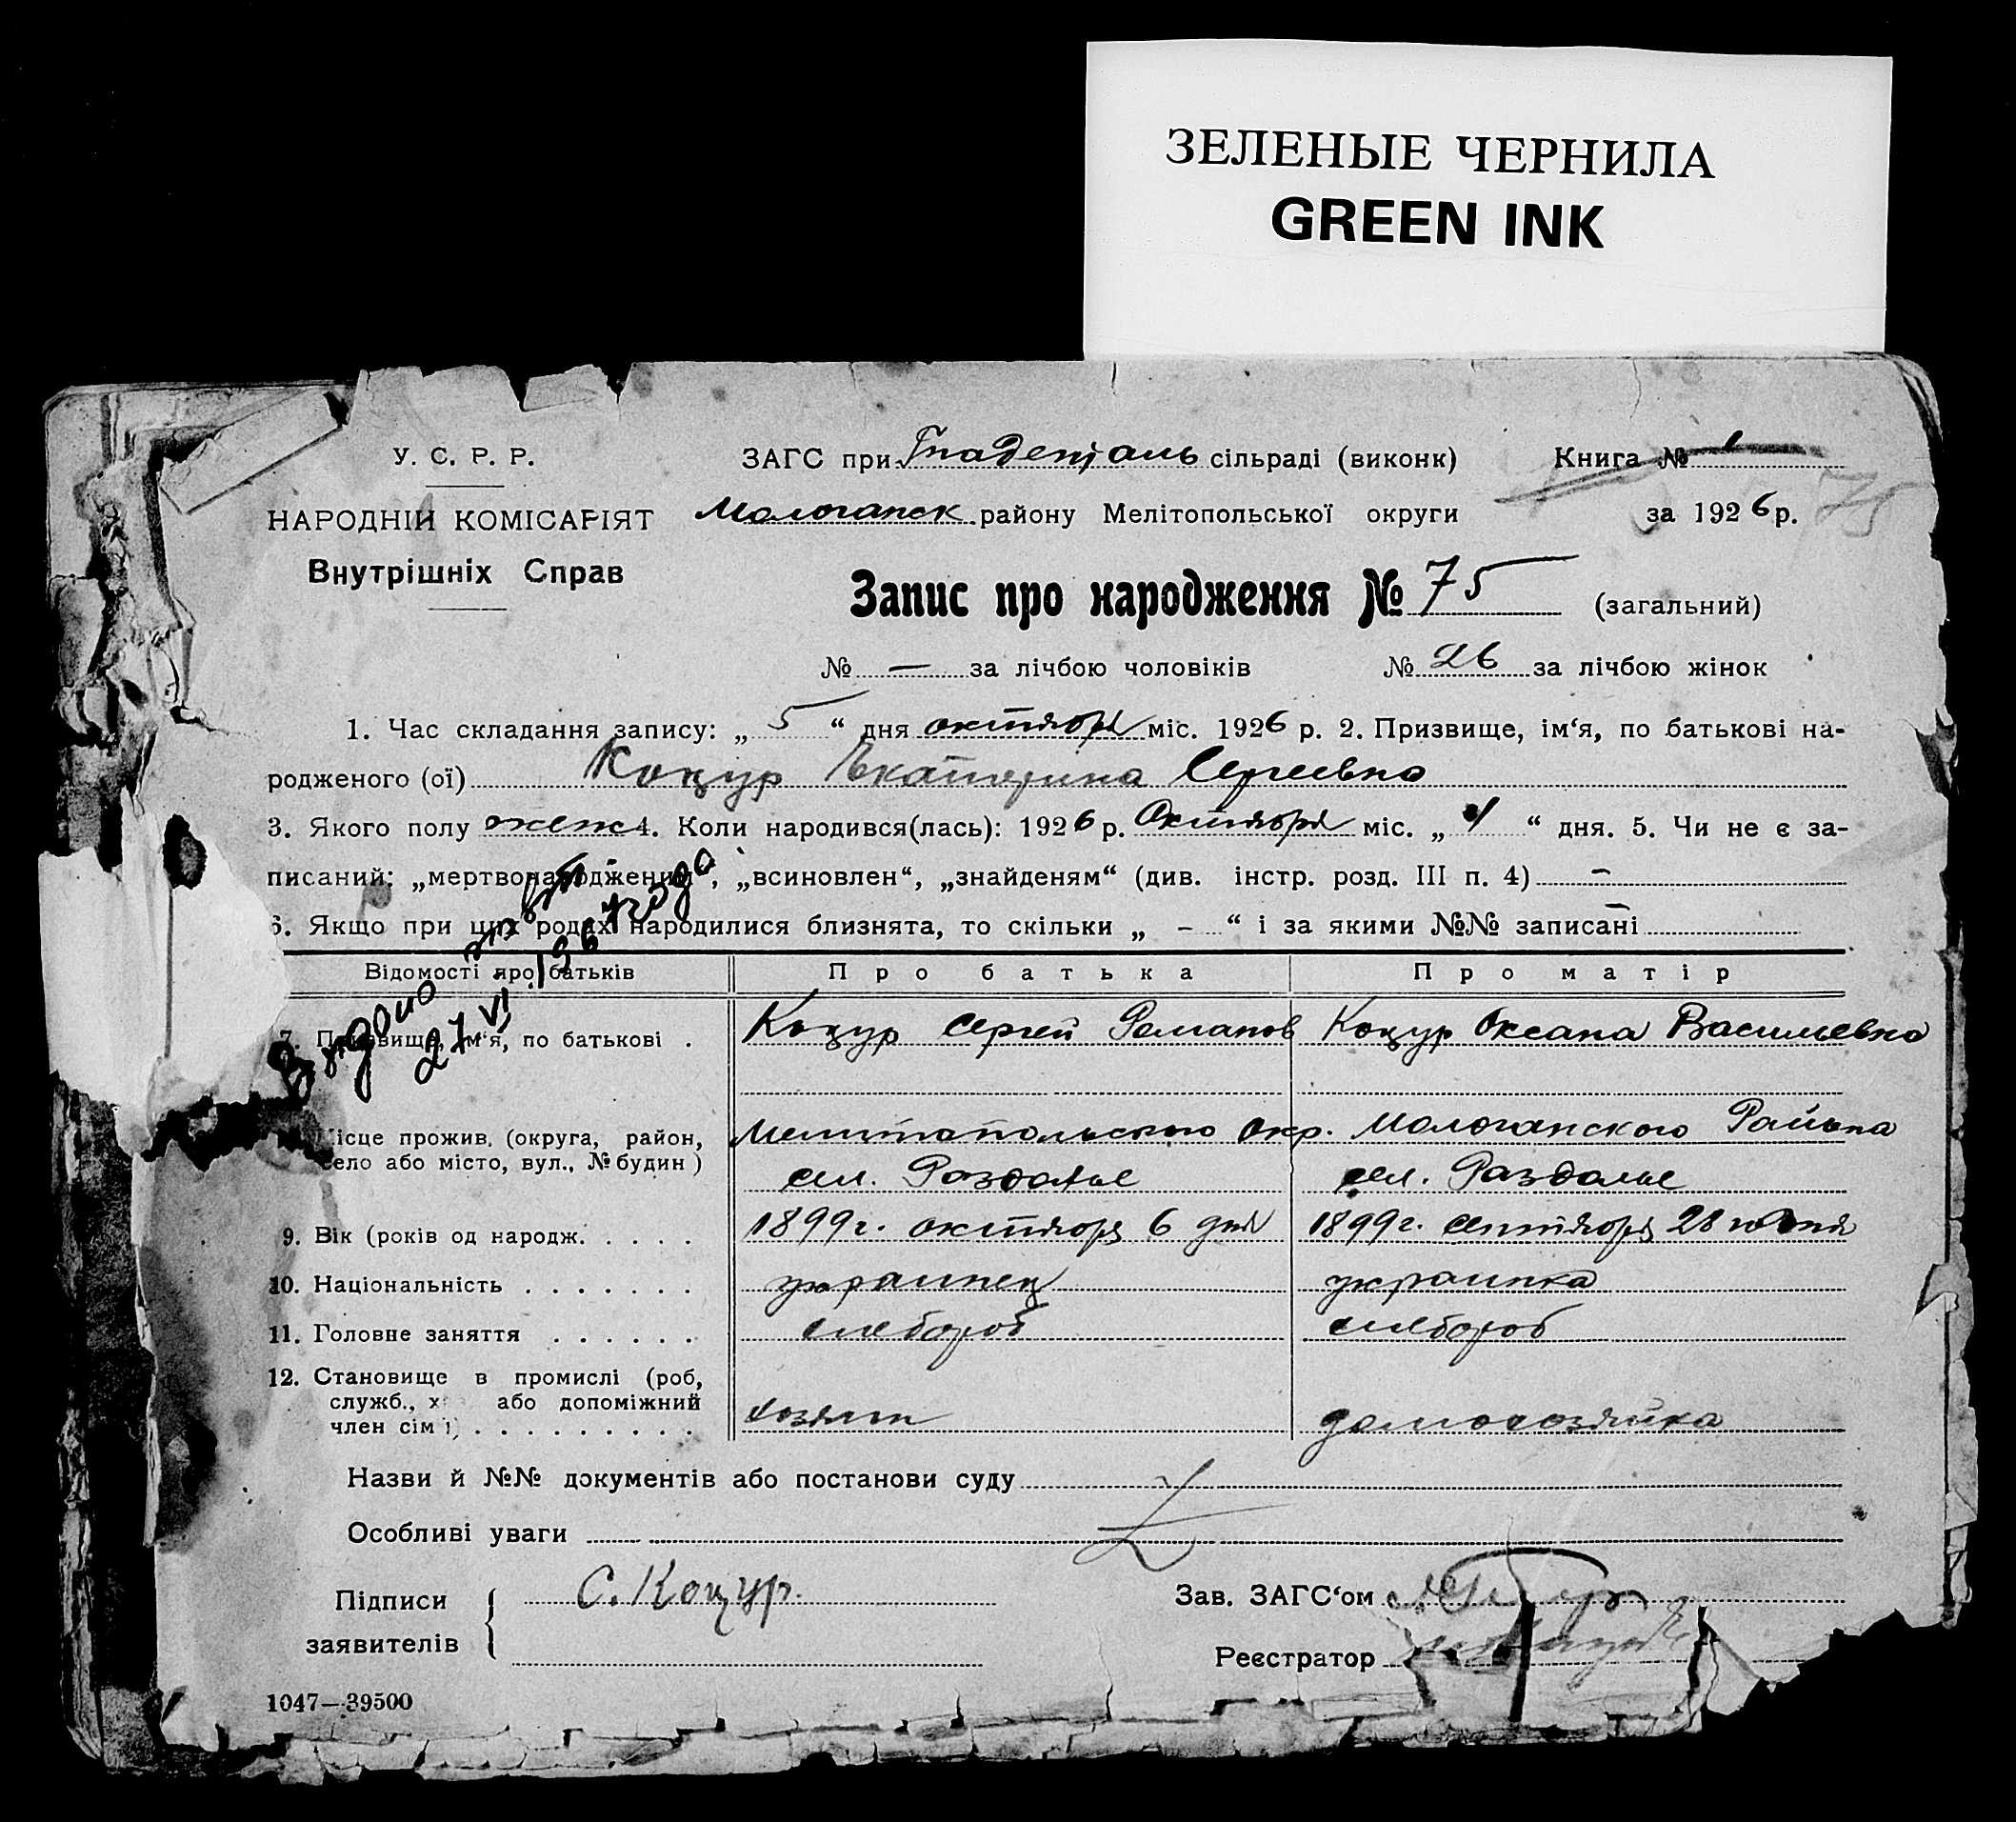 ЗЕЛЕНЫЕ ЧЕРНИЛА
GREEN INK
У. С. Р. Р.
НАРОДНІЙ КОМІСАРІЯТ
Внутрішніх Справ
ЗАГС при Гнаденталь сільраді (виконк)
Книга № 1
Молочанск району Мелітопольської округи
за 1926 р.
75
Запис про народження № 75 (загальний)
№ — за лічбою чоловіків № 26 за лічбою жінок
1. Час складання запису: „ 5 “ дня октября міс. 1926 р. 2. Призвище, ім‘я, по батькові на-
родженого (ої) Коцур Екатерина Сергеевна
3. Якого полу жен 4. Коли народився(лась): 1926 р. Октября міс. „ 1 “ дня. 5. Чи не є за-
писаний: „мертвонароджений“, „всиновлен“, „знайденям“ (див. інстр. розд. III п. 4) –
6. Якщо при цих родах народилися близнята, то скільки „ – “ і за якими №№ записані –
27 VI 1967 года
Відомості про батьків Про батька Про матір
7. Призвище, ім‘я, по батькові . Коцур Сергей Романов Коцур Оксана Васильевна
Місце прожив. (округа, район, Мелитопольского Окр. Молочанского Района
село або місто, вул., № будин) сел. Роздолье сел. Раздолье
9. Вік (років од народж. . . . . 1899 г. октября 6 дня 1899 г. сентября 28 дня
10. Національність . . . . . . . украинец украинка
11. Головне заняття . . . . . . хлебороб хлебороб
12. Становище в промислі (роб,
служб., х або допоміжний
член сім ї) . . . . . . . . . хозяин домохозяйка
Назви й №№ документів або постанови суду
Особливі уваги
Підписи
заявителів
С. Коцур.
Зав. ЗАГС‘ом
Реєстратор
1047—39500